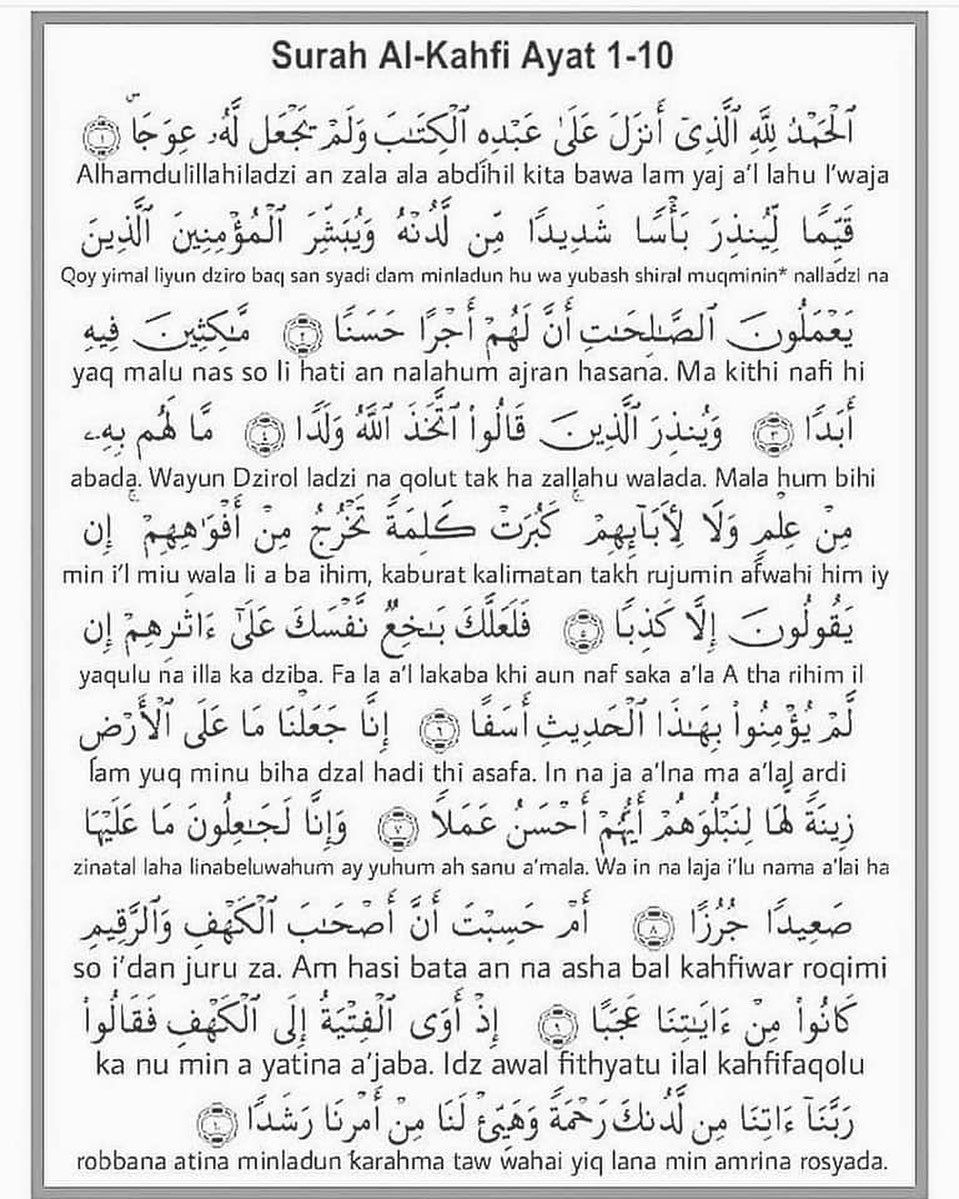 Surah Al-Kahfi Ayat 1-10
ٱلْحَمْدُ لِلَّهِ ٱلَّذِىٓ أَنزَلَ عَلَىٰ عَبْدِهِ ٱلْكِتَـٰبَ وَلَمْ يَجْعَل لَّهُۥ عِوَجَاۜ ١
Alhamdulillahiladzi an zala ala abdihil kita bawa lam yaj a'l lahu I'waja
قَيِّمًا لِّيُنذِرَ بَأْسًا شَدِيدًا مِّن لَّدُنْهُ وَيُبَشِّرَ ٱلْمُؤْمِنِينَ ٱلَّذِينَ
Qoy yimal liyun dziro baq san syadi dam minladun hu wa yubash shiral muqminin* nalladzI na
يَعْمَلُونَ ٱلصَّـٰلِحَـٰتِ أَنَّ لَهُمْ أَجْرًا حَسَنًا ٢ مَّـٰكِثِينَ فِيهِ
yaq malu nas so li hati an nalahum ajran hasana. Ma kithi nafi hi
أَبَدًا ٣ وَيُنذِرَ ٱلَّذِينَ قَالُوا۟ ٱتَّخَذَ ٱللَّهُ وَلَدًا ٤ مَّا لَهُم بِهِۦ
abada. Wayun Dzirol ladzi na qolut tak ha zallahu walada. Mala hum bihi
مِنْ عِلْمٍ وَلَا لِـَٔابَآئِهِمْ ۚ كَبُرَتْ كَلِمَةً تَخْرُجُ مِنْ أَفْوَٰهِهِمْ ۚ إِن
min i'l miu wala li a ba ihim, kaburat kalimatan takh rujumin afwahi him iy
يَقُولُونَ إِلَّا كَذِبًا ٥ فَلَعَلَّكَ بَـٰخِعٌ نَّفْسَكَ عَلَىٰٓ ءَاثَـٰرِهِمْ إِن
yaqulu na illa ka dziba. Fa la a'l lakaba khi aun naf saka a'la A tha rihim il
لَّمْ يُؤْمِنُوا۟ بِهَـٰذَا ٱلْحَدِيثِ أَسَفًا ٦ إِنَّا جَعَلْنَا مَا عَلَى ٱلْأَرْضِ
lam yuq minu biha dzal hadi thi asafa. In na ja a'lna ma a'lal ardi
زِينَةً لَّهَا لِنَبْلُوَهُمْ أَيُّهُمْ أَحْسَنُ عَمَلًا ٧ وَإِنَّا لَجَـٰعِلُونَ مَا عَلَيْهَا
zinatal laha linabeluwahum ay yuhum ah sanu a'mala. Wa in na laja i'lu nama a'lai ha
صَعِيدًا جُرُزًا ٨ أَمْ حَسِبْتَ أَنَّ أَصْحَـٰبَ ٱلْكَهْفِ وَٱلرَّقِيمِ
so i'dan juru za. Am hasi bata an na asha bal kahfiwar roqimi
كَانُوا۟ مِنْ ءَايَـٰتِنَا عَجَبًا ٩ إِذْ أَوَى ٱلْفِتْيَةُ إِلَى ٱلْكَهْفِ فَقَالُوا۟
ka nu min a yatina a'jaba. Idz awal fithyatu ilal kahfifaqolu
رَبَّنَآ ءَاتِنَا مِن لَّدُنكَ رَحْمَةً وَهَيِّئْ لَنَا مِنْ أَمْرِنَا رَشَدًا ١٠
robbana atina minladun karahma taw wahai yiq lana min amrina rosyada.